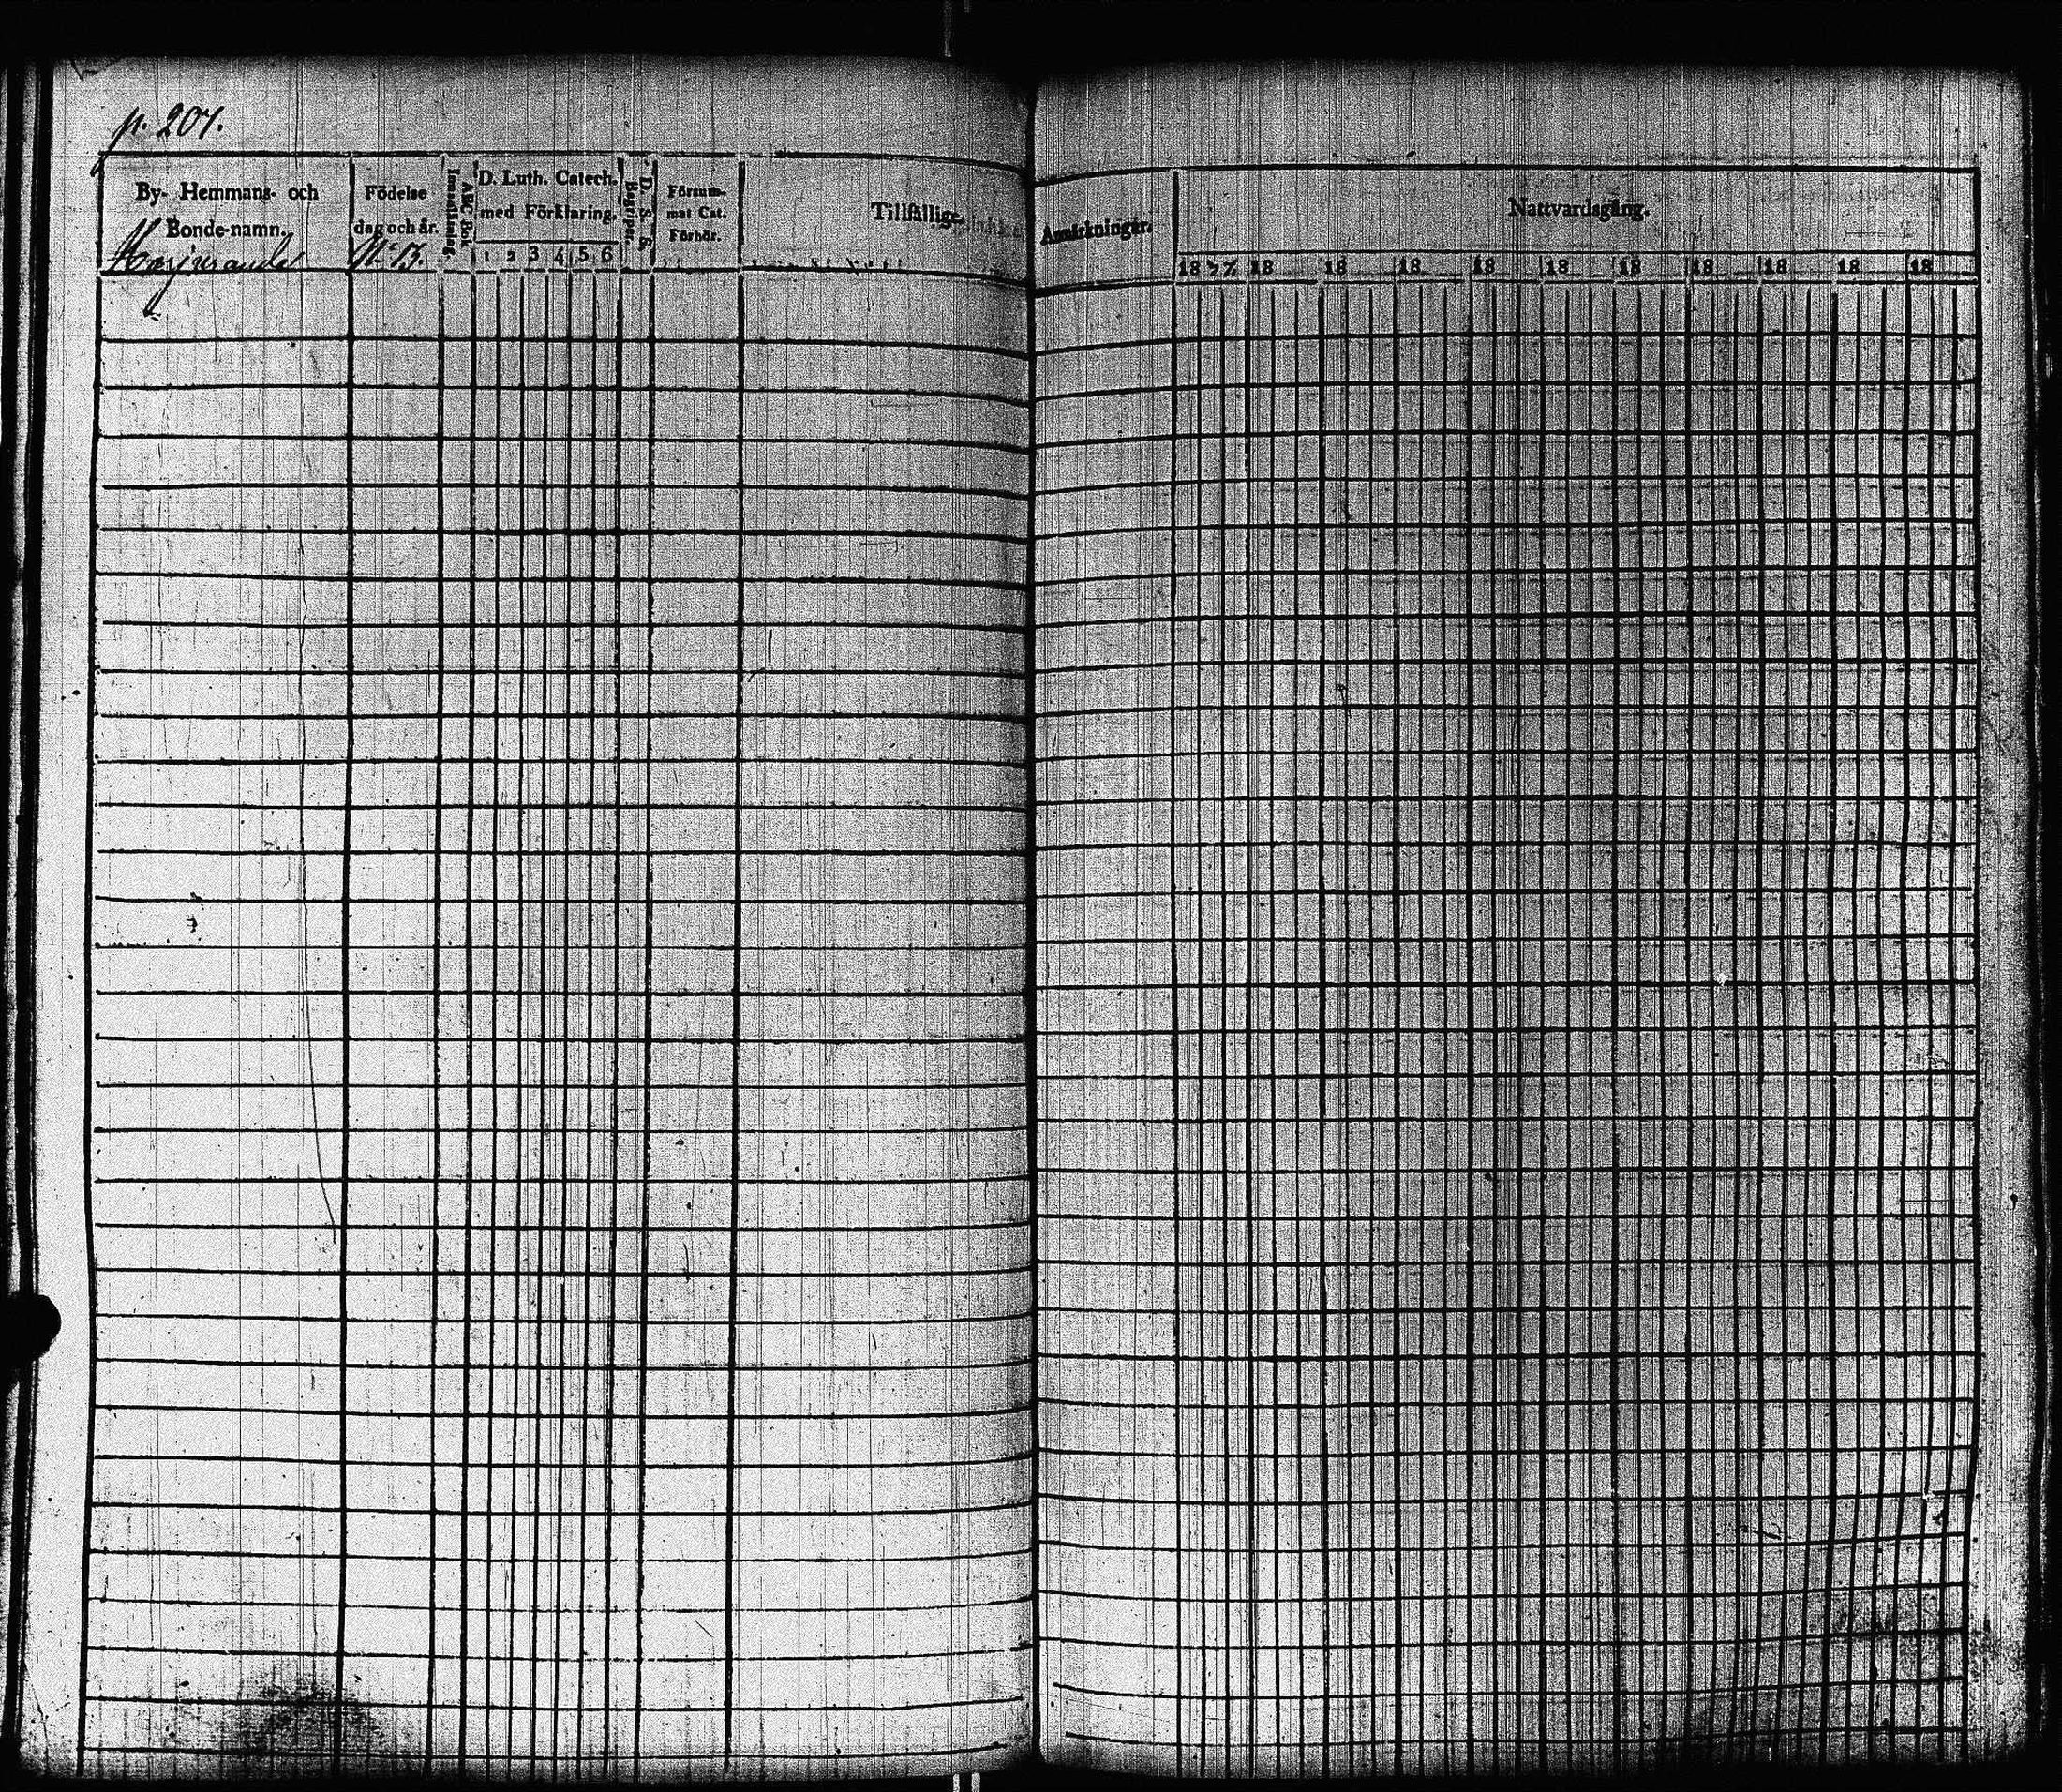 p. 207.
By- Hemmans- och
Bonde-namn.
Födelse
dag och år.
N:o 13.
Innantläsning.
ABC Bok
D. Luth. Catech.
med Förklaring.
1 2 3 4 5 6
D. S. B.
Begriper.
Försum-
mat Cat.
Förhör.
Tillfällige
Anmärkningar.
Nattvardsgång.
1837 18 18 18 18 18 18 18 18 18 18